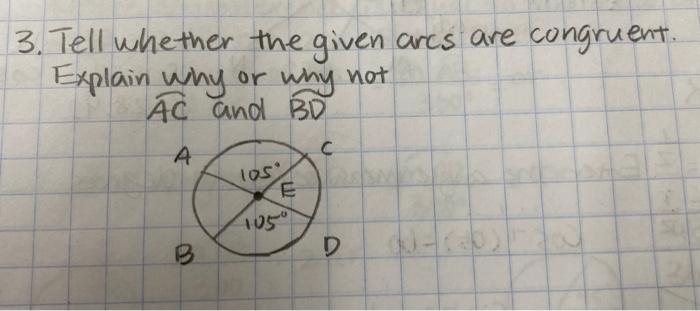 3. Tell whether the given arcs are congruent.
Explain why or why not
AC and BD
A
C
105°
E
105°
B
D